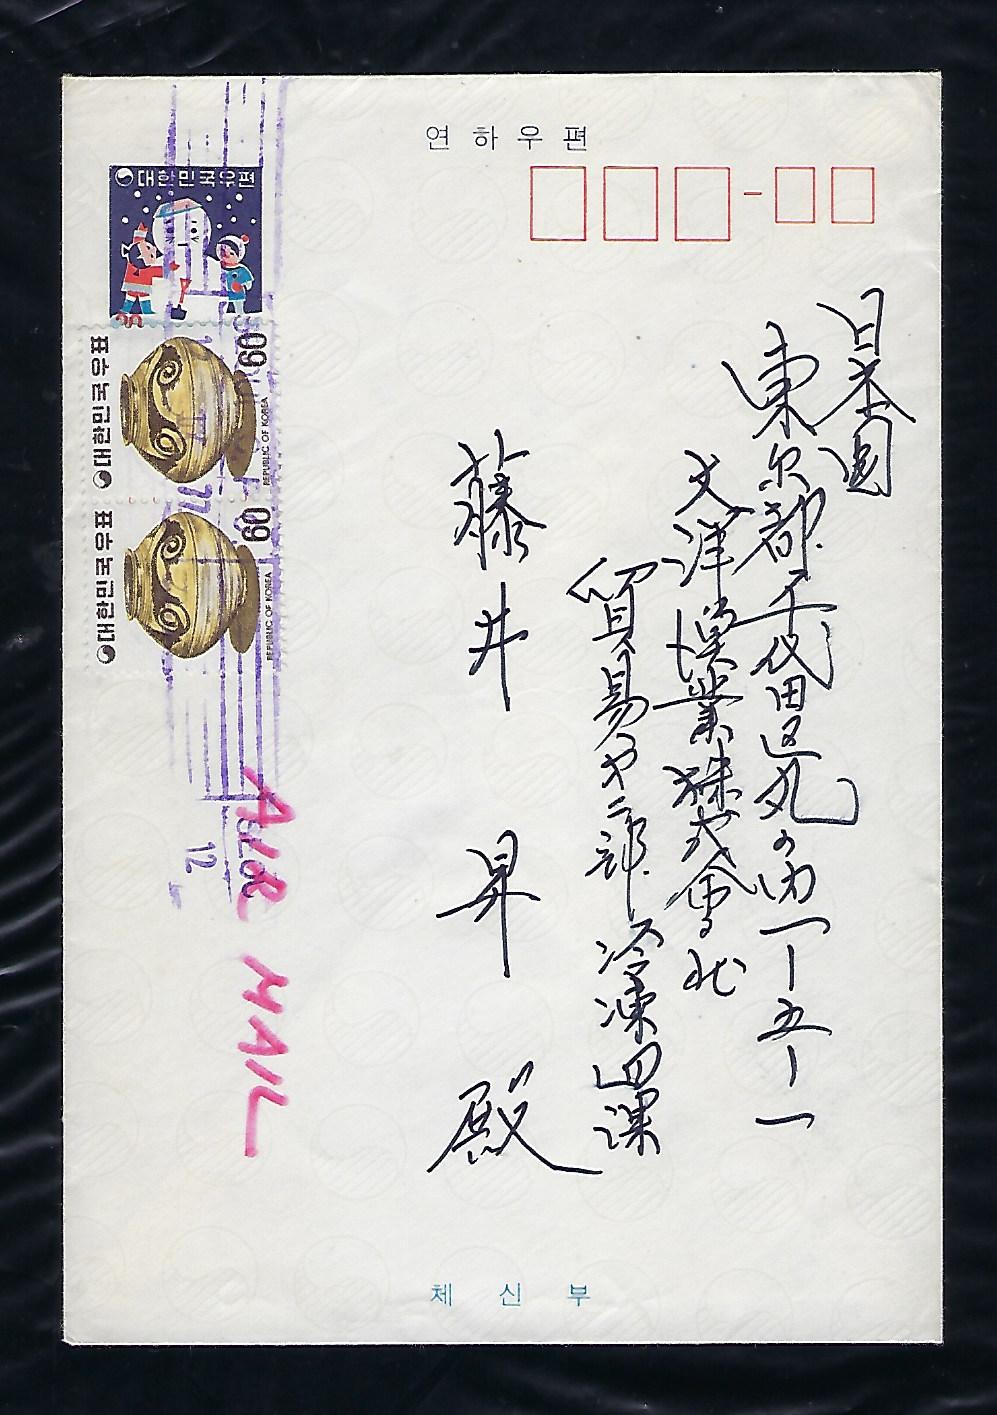 연하우편
대한민국우편
10
60
REPUBLIC OF KOREA
대한민국우표
60
REPUBLIC OF KOREA
대한민국우표
日本国
東京都千代田区丸の内一ー五ー一
大洋漁業株式会社
貿易第二部冷凍四課
藤井昇殿
AIR MAIL
12
체신부